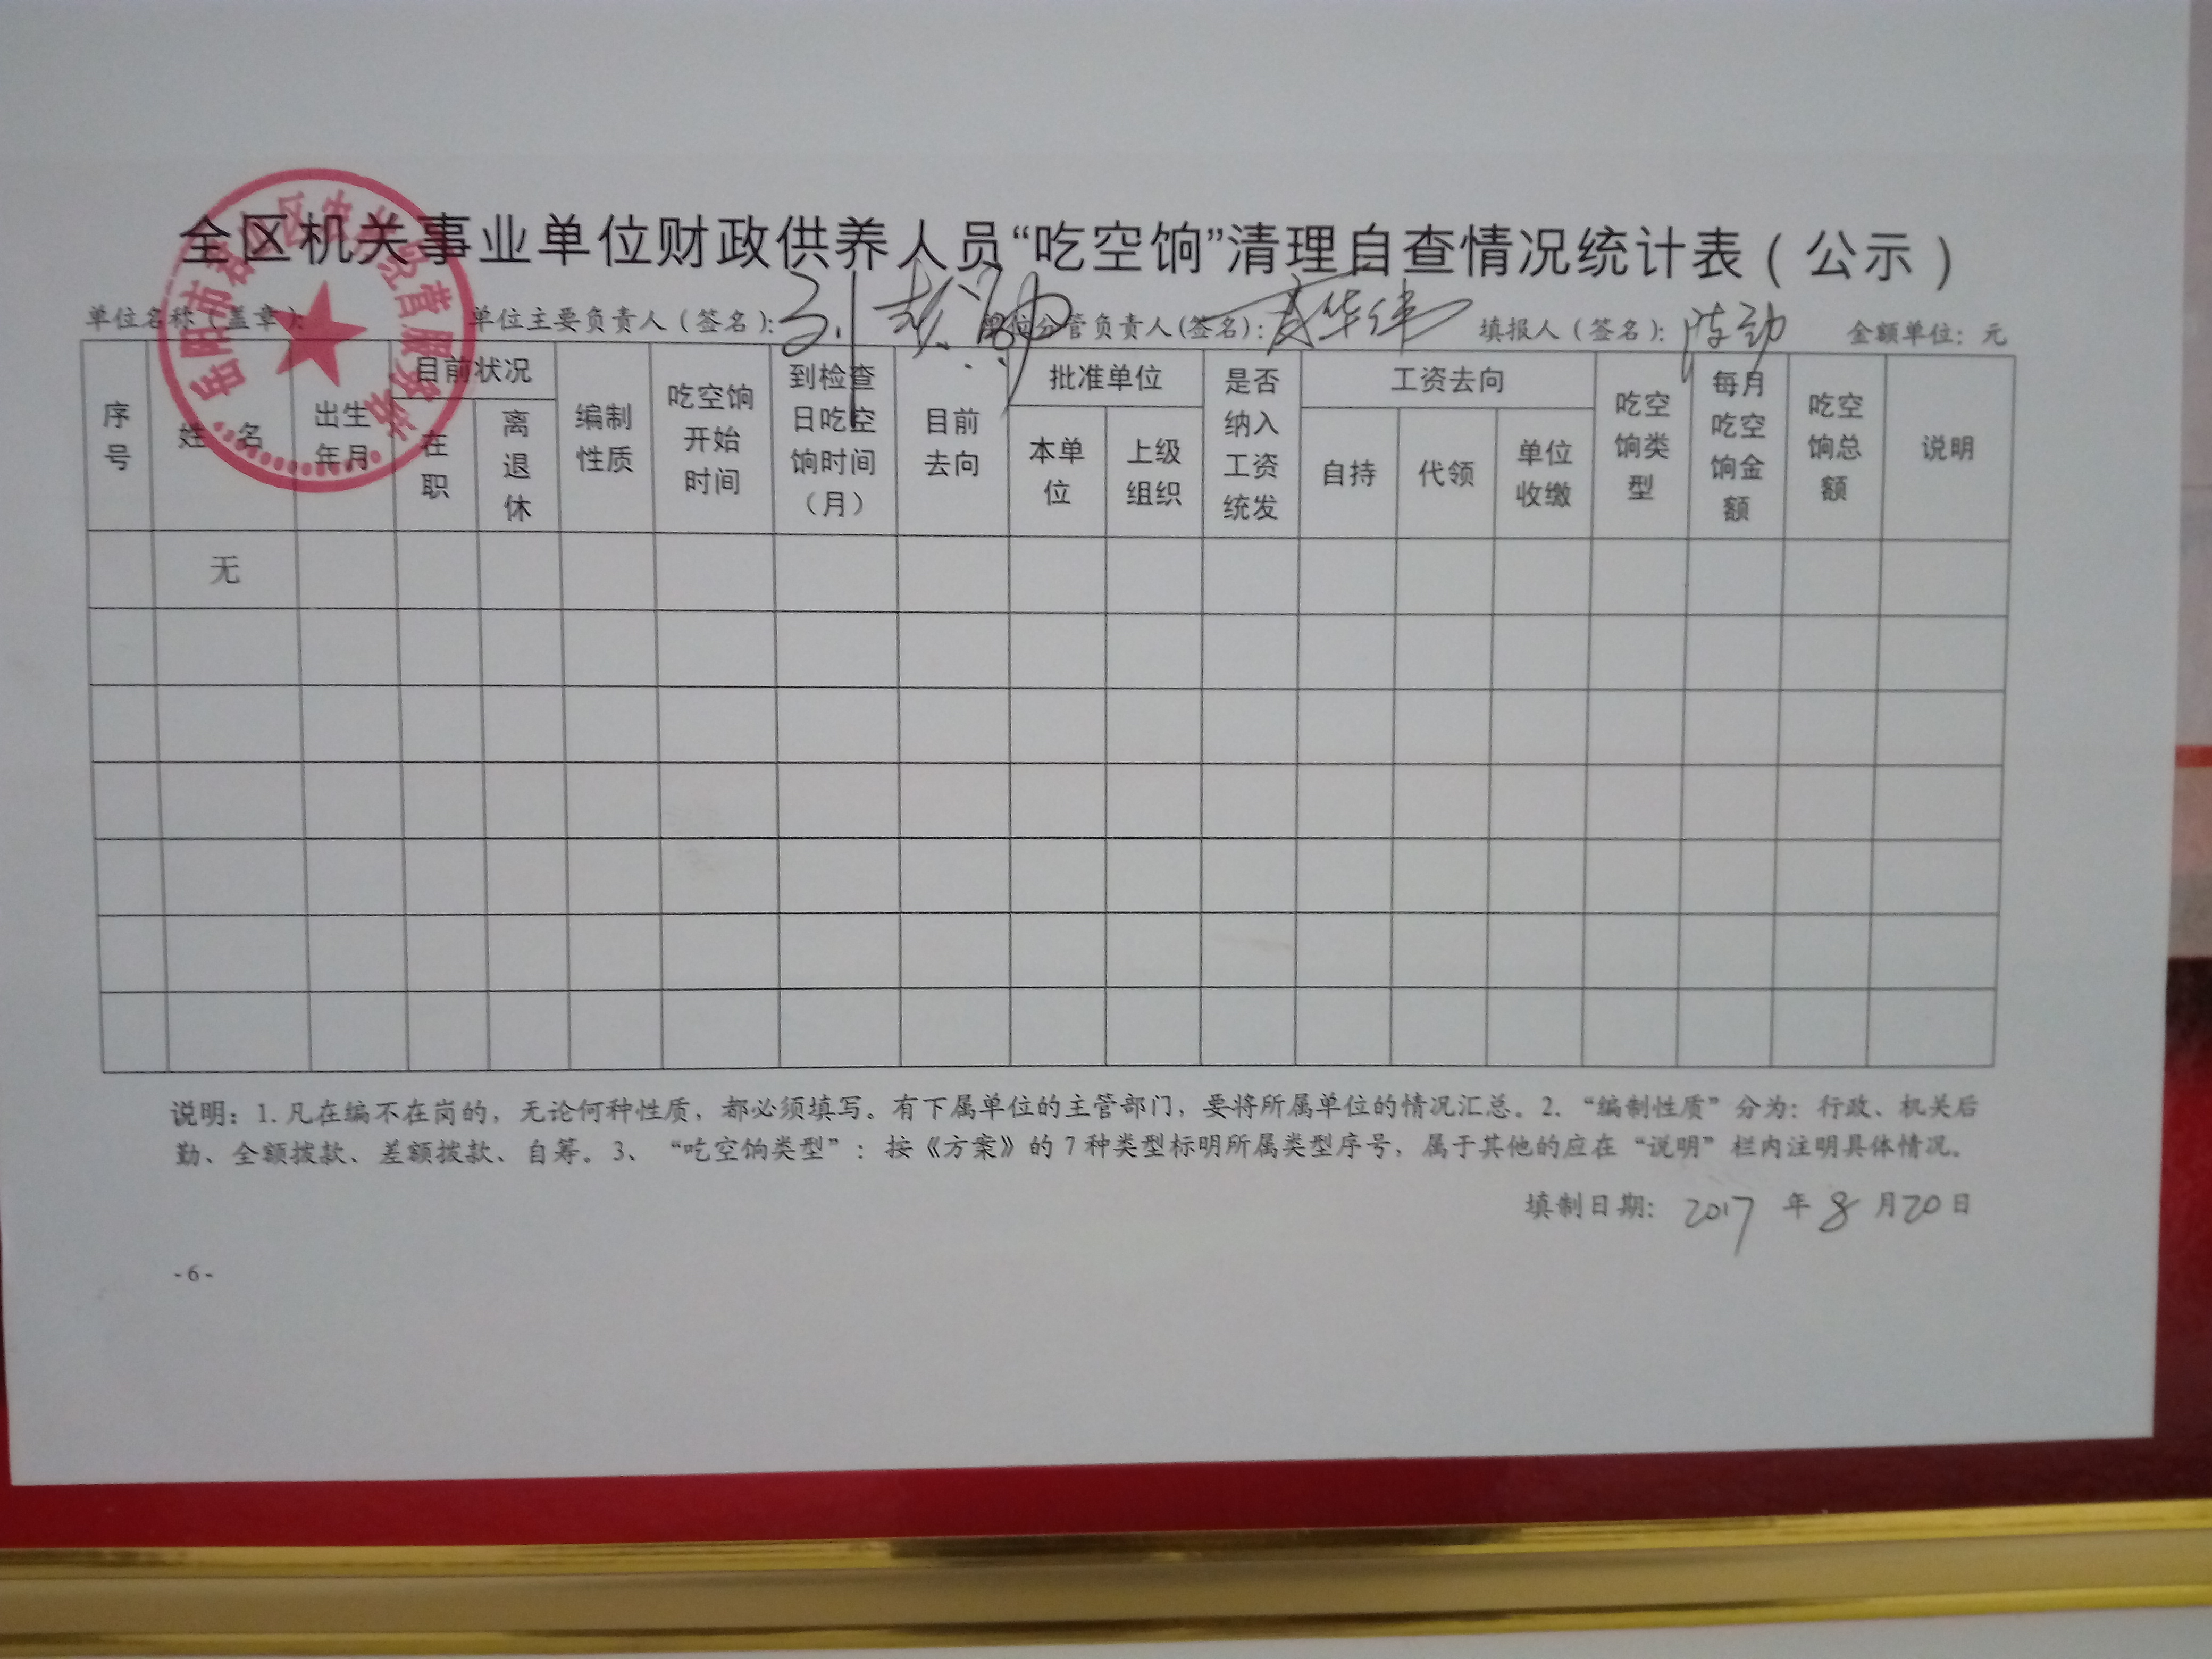 全区机关事业单位财政供养人员“吃空饷”清理自查情况统计表（公示）
单位名称（盖章）： 单位主要负责人（签名）： 单位分管负责人(签名)： 填报人（签名）：陈劲 金额单位：元
岳阳市君山区农村经营服务站
序号 姓 名 出生年月 目前状况 在职 离退休 编制性质 吃空饷开始时间 到检查日吃空饷时间（月） 目前去向 批准单位 本单位 上级组织 是否纳入工资统发 工资去向 自持 代领 单位收缴 吃空饷类型 每月吃空饷金额 吃空饷总额 说明
无
说明：1.凡在编不在岗的，无论何种性质，都必须填写。有下属单位的主管部门，要将所属单位的情况汇总。2.“编制性质”分为：行政、机关后
勤、全额拨款、差额拨款、自筹。3、“吃空饷类型”：按《方案》的7种类型标明所属类型序号，属于其他的应在“说明”栏内注明具体情况。
填制日期： 2017 年 8 月 20 日
- 6 -